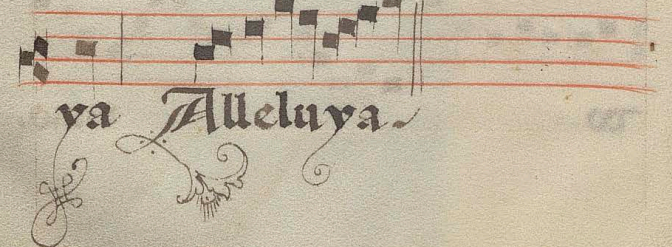 ya Alleluya.